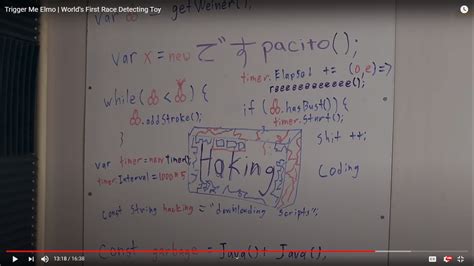 Trigger Me Elmo | World's First Race Detecting Toy
getWeiner();
var x = new で゛すpacito();
timer.Elapsed += (o,e)=>
reeeeeeeeeee();
while( < ) {
.addStroke();
}
if ( .hasBust()) {
timer.Start();
}
shit ++;
var timer = new Timer();
timer.Interval = 1000*5
Haking
Coding
const string hacking = "downloading scripts";
const garbage = Java() + Java();
13:18 / 16:38